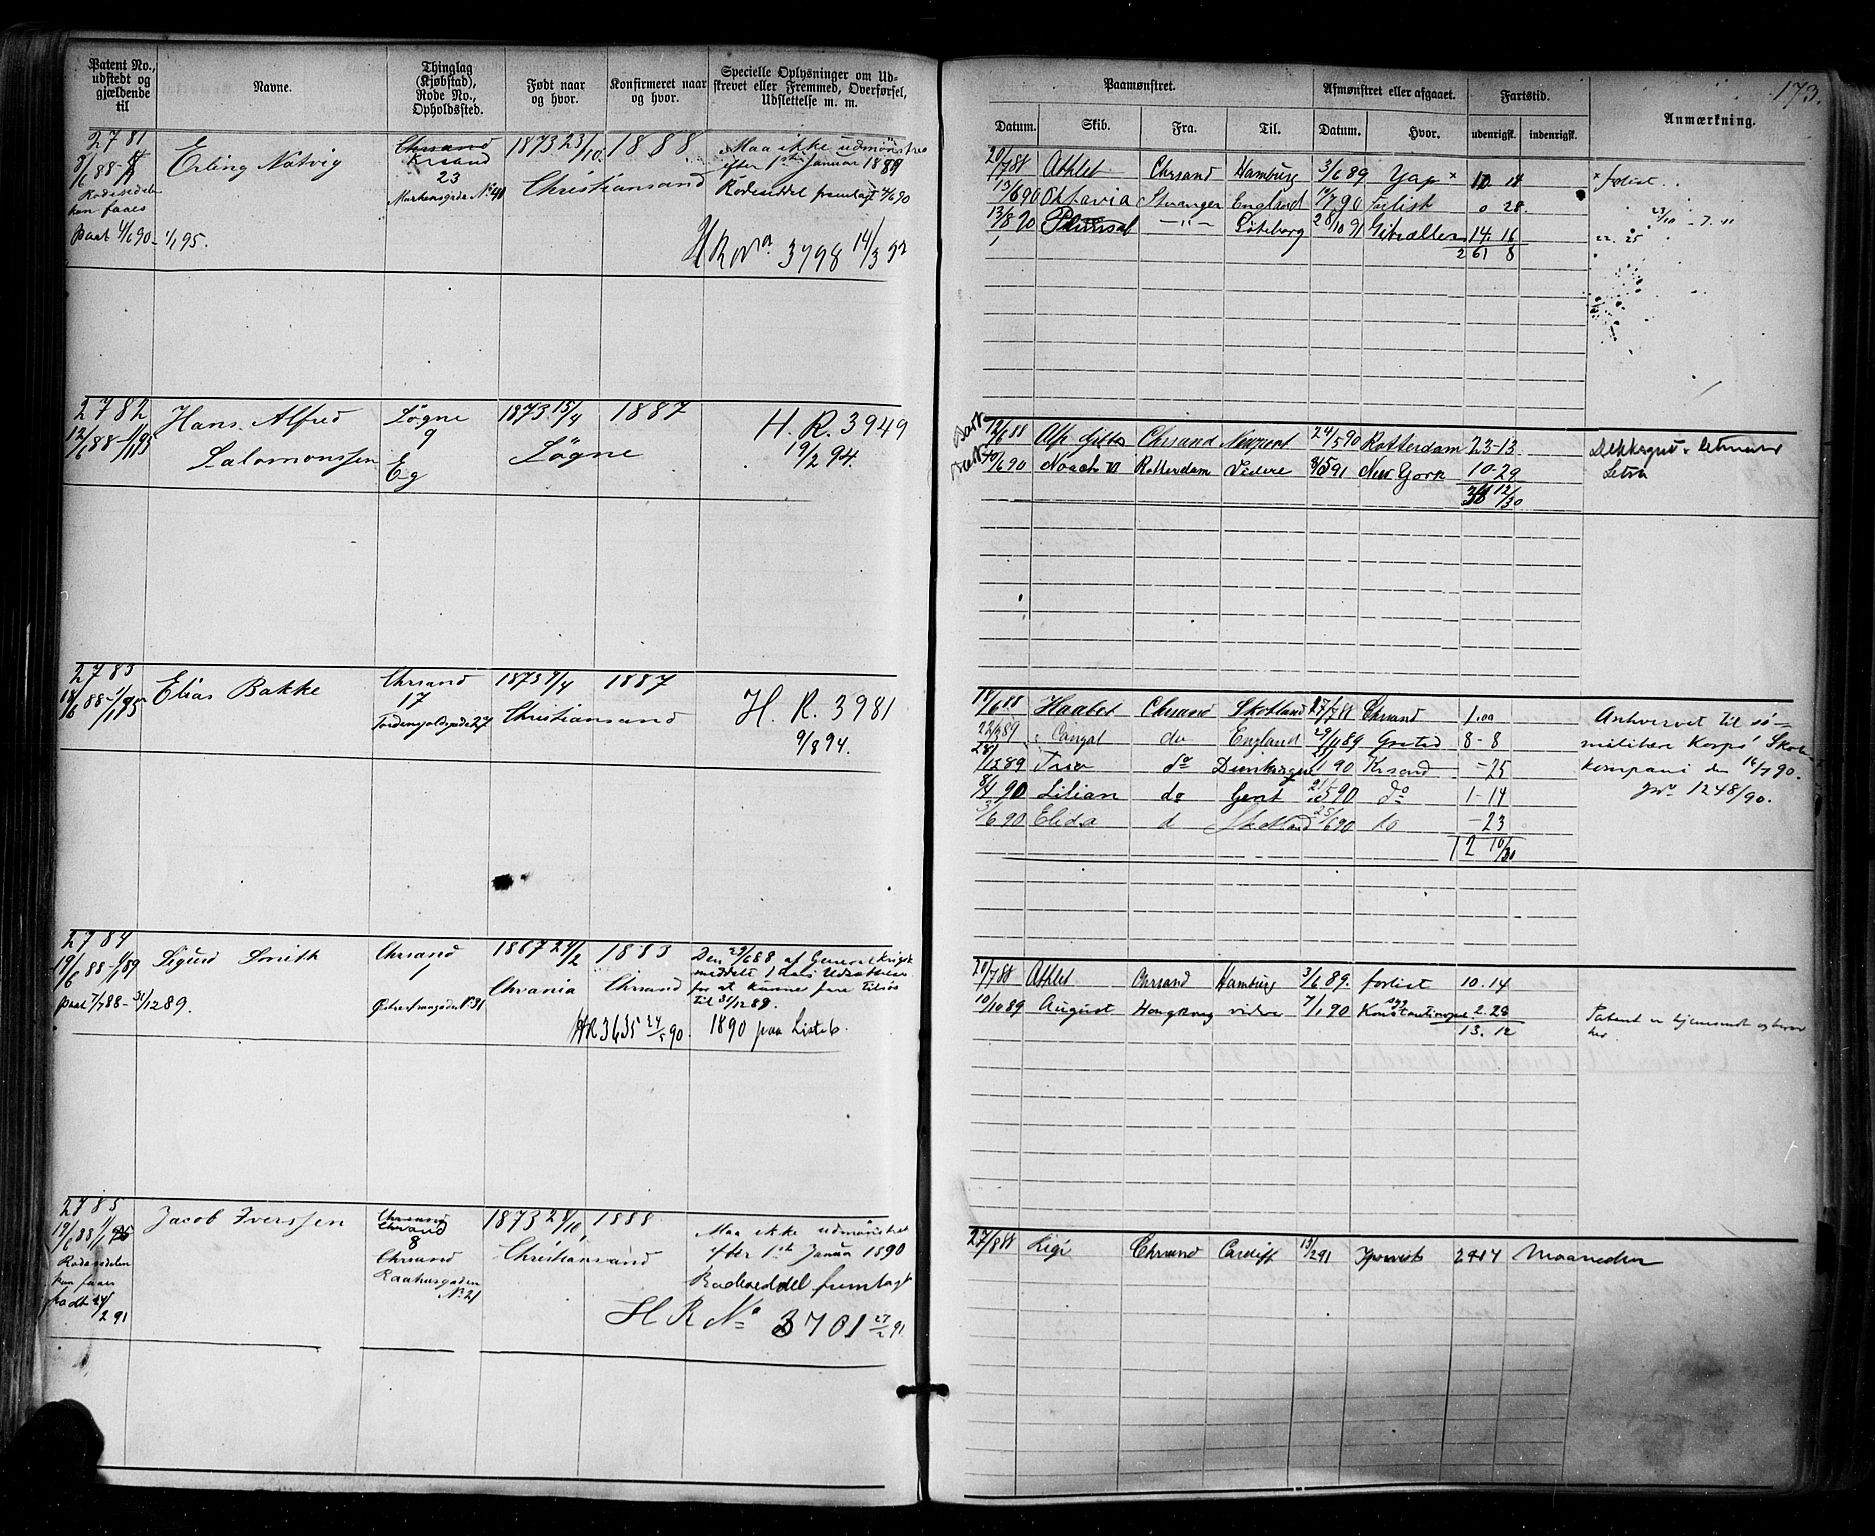 Patent No., udstedt og gjældende til
Navne.
Thinglag (Kjøbstad), Rode No., Opholdssted.
Født naar og hvor.
Konfirmeret naar og hvor.
Specielle Oplysninger om Udskrevet eller Fremmed, Overførsel, Udslettelse m. m.
Paamønstret.
Afmønstret eller afgaaet.
Fartstid.
Anmærkning.
173.
Datum.
Skib.
Fra.
Til.
Datum.
Hvor.
udenrigsk.
indenrigsk.
2781
Erling Natvig
Chrsand
Krsand
23
Markensgade No 40
1873 23/10
Christiansand
1888
Maa ikke udmønstres
efter 1ste Januar 1889
Rodeseddel fremlagt 4/6 90
Rodeseddel
kan faaes
paat 4/6 90 - 1/1 95.
H R No 3798 14/3 92
20/7 88 Athlet Chrsand Hamburg 3/6 89 Yap x 10 14
x forlist
13/6 90 Oktavia Stavanger England 14/7 90 Forlist 0 28
13/8 90 —"— Gøteborg 28/10 91 Gibraltar 14. 16
2782
12/6 88 - 1/1 95
Hans Alfred
Salomonssen
Søgne
9
Eg
1873 15/4
Søgne
1887
H. R. 3949
19/2 94.
12/6 88 Chrsand Newport 24/5 90 Rotterdam 23-13
10/6 90 Noach VI Rotterdam Videre 8/5 91 New York 10-29
2783
18/6 88 - 1/1 95
Elias Bakke
Chrsand
17
Tordenskjoldsgade 27
1873 9/4
Christiansand
1887
H. R. 3981
9/8 94.
18/6 88 Haabet Chrsand Skotland 27/7 88 Chrsand 1.00
do England 8-8
28/12 89 do 1/90 Krsand - 25
8/4 90 Lilian do Gent 21/5 90 do 1-14
3/6 90 Elida d Skotland 25/6 90 do - 23
12 10/30
Anhvervet til sø-
militære Korps' Skole-
kompani den 16/7 90.
jno 1248/90.
2784
19/6 88 - 1/1 89
paat 7/7 88 - 31/12 89.
Sigurd Smith
Chrsand
1
1867 24/2
Chrania
1883
Chrsand
Den 29/6 88 af Generalkrigsk
meddelt 1 Aars Udsættelse
for at kunne fare tilsøs
til 31/12 89.
HR 3635 24/5 90. 1890 paa Liste 6.
20/7 88 Athlet Chrsand Hamburg 3/6 89. forlist 10. 14
10/10 89 August Hongkong videre 7/1 90 syg Konstantinopel 2. 28
13. 12
Patent er hjemsendt og beror
her
2785
19/6 88
Rodeseddel
kan faaes
24/2 91
Jacob Iverssen
Chrsand
8
Chrsand
Raahusgaden
No 21
1873 28/10
Christiansand
1888
Maa ikke udmønstret
efter 1ste Januar 1890
Rodeseddel fremlagt
H R No 3701 27/2 91
27/8 88 Rigi Chrsand Cardiff 13/2 91 Maaneder